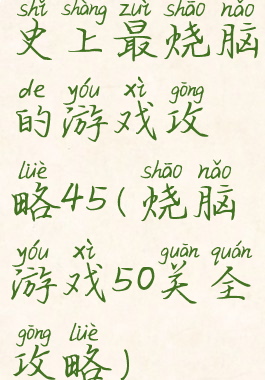 shǐ shàng zuì shāo nǎo
史上最烧脑
de yóu xì gōng
的游戏攻
lüè shāo nǎo
略45(烧脑
yóu xì guān quán
游戏50关全
gōng lüè
攻略)